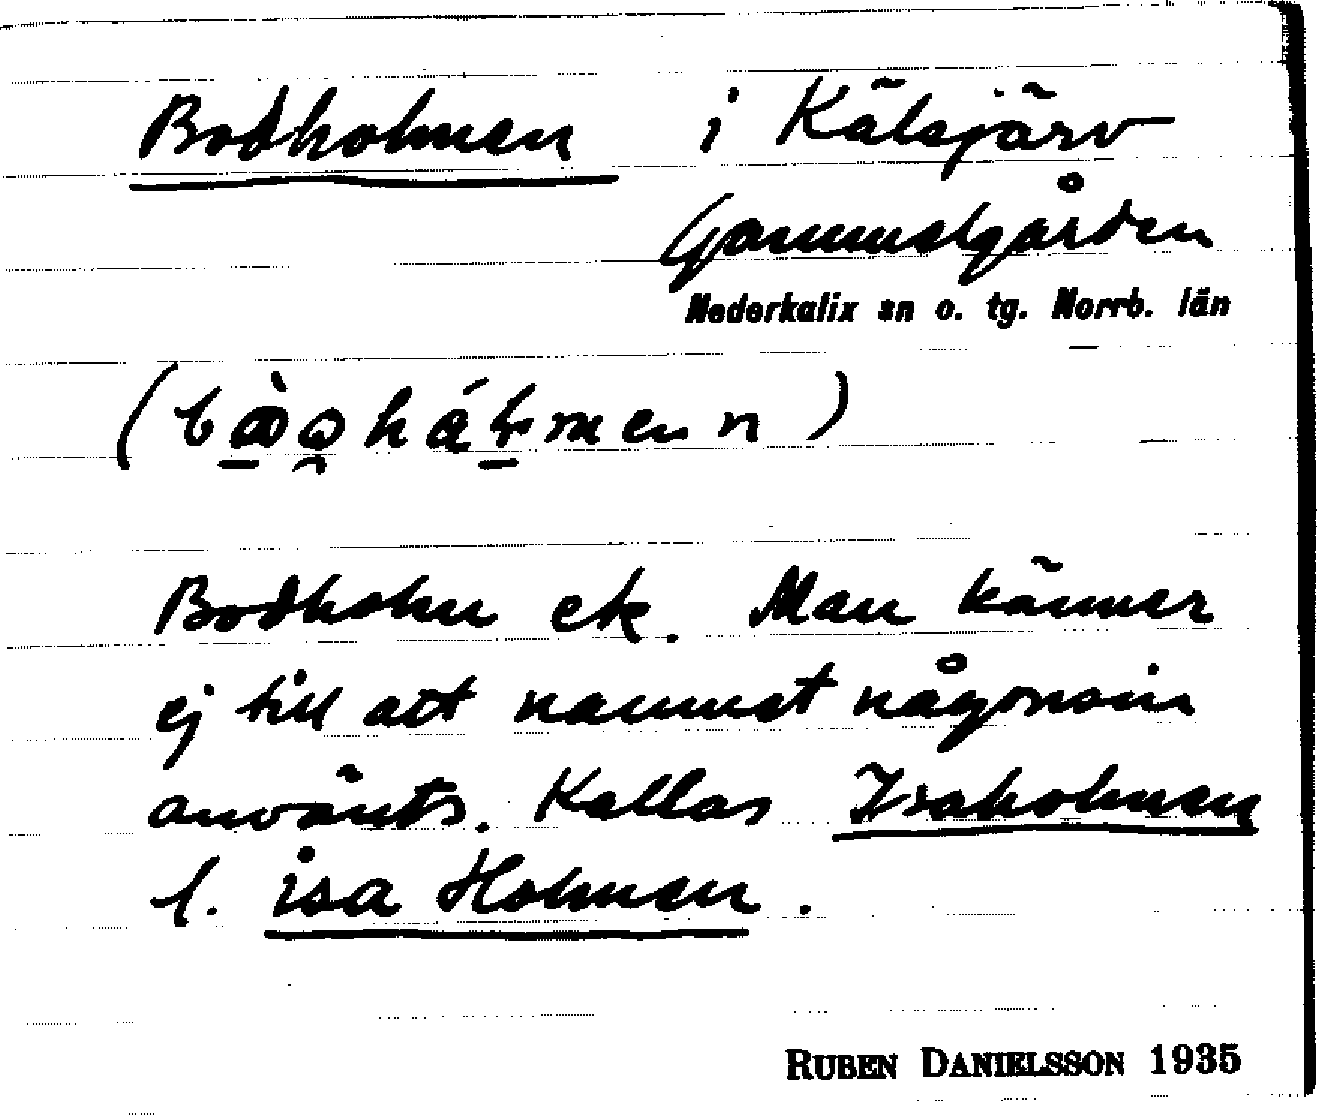 Bodholmen i Kälsjärv
Gammelgården
Nederkalix sn o. tg. Norrb. län
Bodholm ek. Man känner
ej till att namnet någonsin
använts. Kallas Isaholmen
l. isa Holmen.
RUBEN DANIELSSON 1935